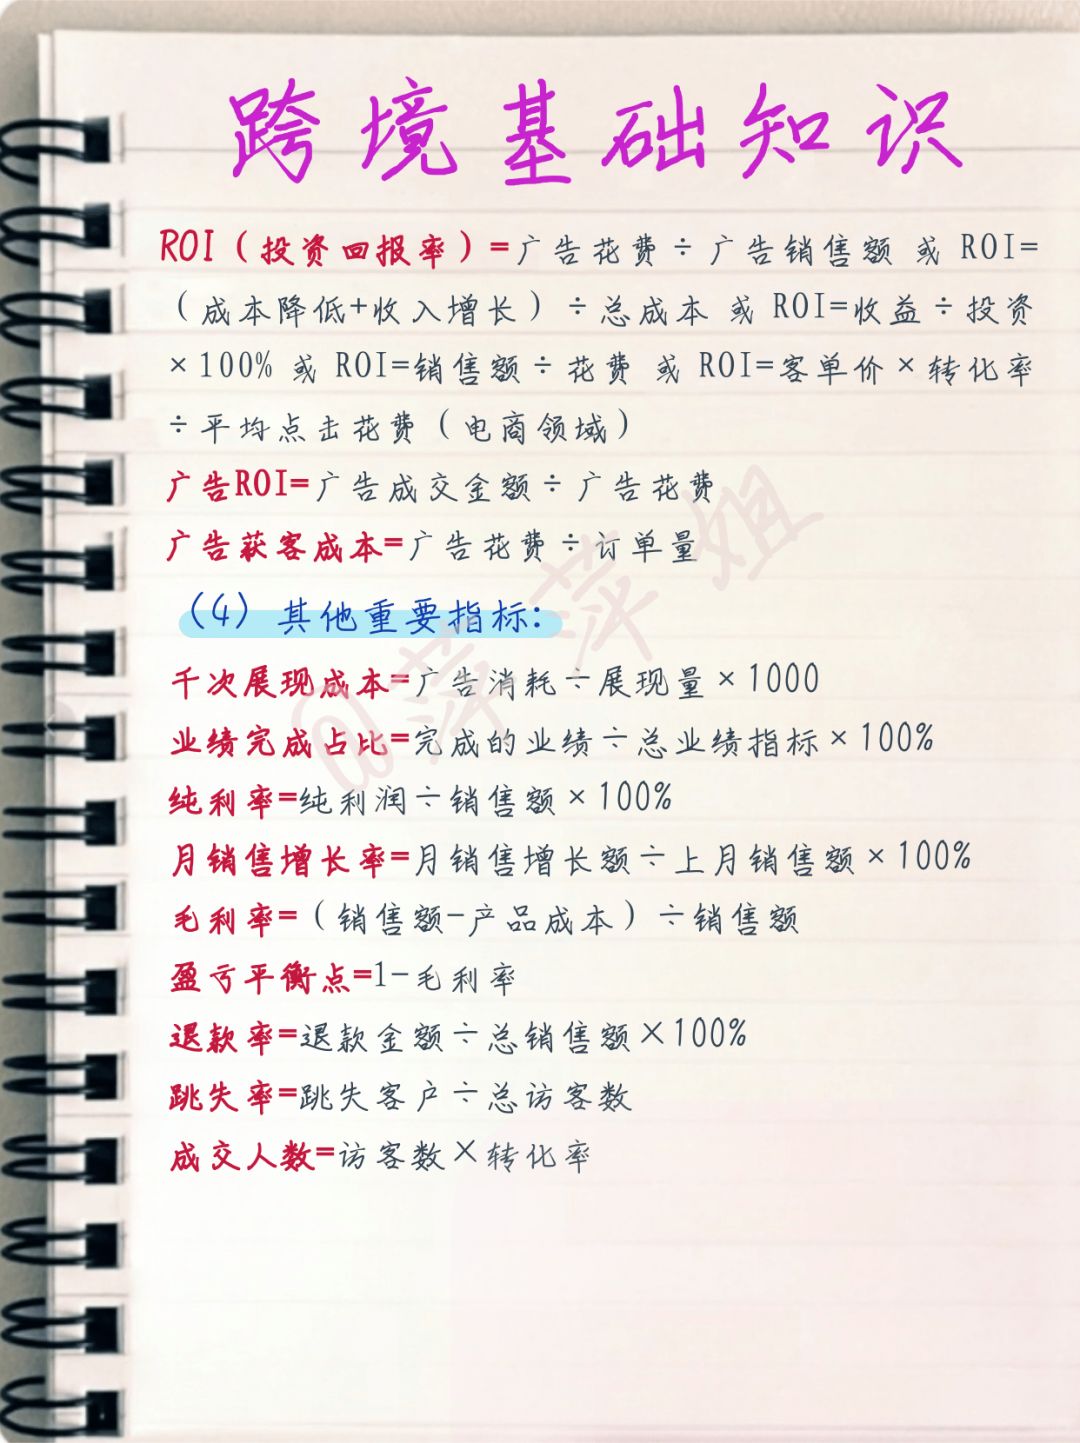 跨境基础知识
ROI（投资回报率）=广告花费÷广告销售额 或 ROI=
（成本降低+收入增长）÷总成本 或 ROI=收益÷投资
×100% 或 ROI=销售额÷花费 或 ROI=客单价×转化率
÷平均点击花费（电商领域）
广告ROI=广告成交金额÷广告花费
广告获客成本=广告花费÷订单量
（4）其他重要指标:
千次展现成本=广告消耗÷展现量×1000
业绩完成占比=完成的业绩÷总业绩指标×100%
纯利率=纯利润÷销售额×100%
月销售增长率=月销售增长额÷上月销售额×100%
毛利率=（销售额-产品成本）÷销售额
盈亏平衡点=1-毛利率
退款率=退款金额÷总销售额×100%
跳失率=跳失客户÷总访客数
成交人数=访客数×转化率
@萍萍姐